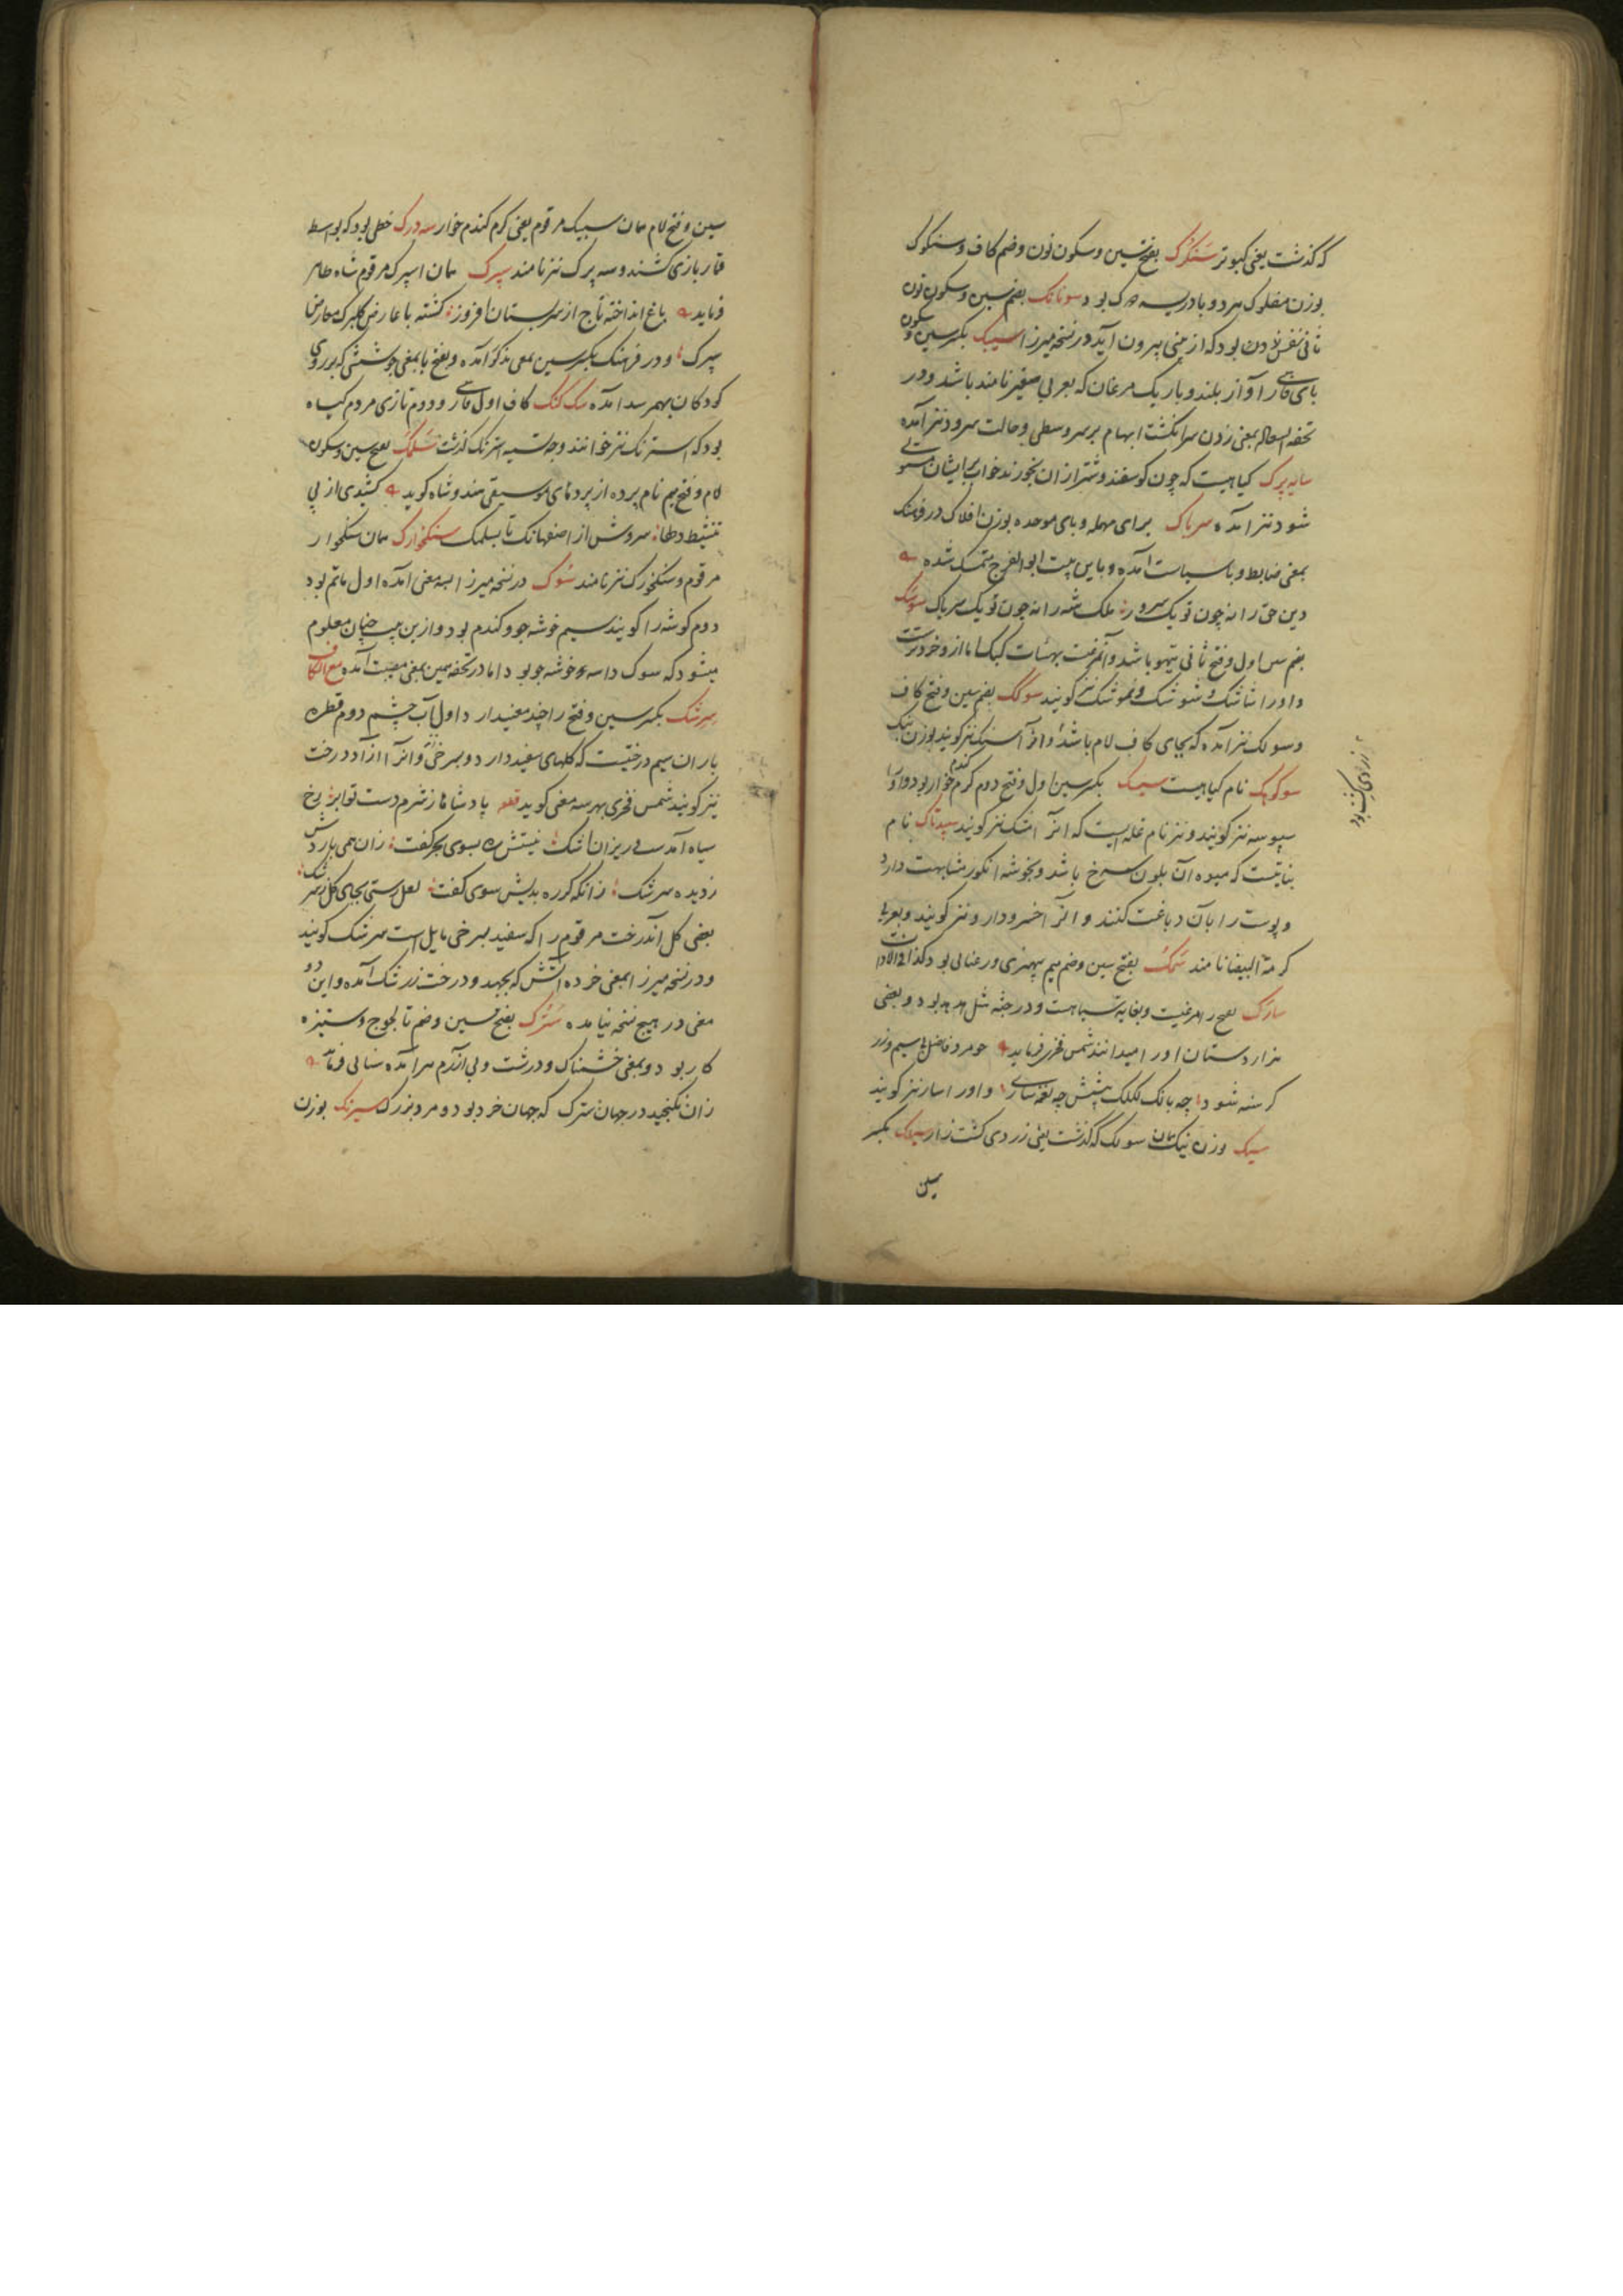 که گذشت یعنی کبوتر سنگرک بفتح سین و سکون نون و ضم کاف و سنکوک
بوزن مفلوک هر دو بادریسه دوک بود سونانک بضم سین و سکون نون
ثانی نفس زدن بود که از بینی بیرون آید در نسخه میرزا سیپک بکسر سین و سکون
بای فارسی آواز بلند و باریک مرغان که بعربی صفیر نامند باشد و در
تحفة السعاده بمعنی زدن سر انگشت ابهام بر سر وسطی و حالت سرود نیز آمده
سایه پرک کیاهیست که چون کوسفند و شتر از ان بخورند خواب بر ایشان مستولی
شود نیز آمده سرباک برای مهمله و بای موحده بوزن افلاک در فرهنک
بمعنی ضابط و با سیاست آمده و باین بیت ابو الفرج متمسک شده
دین حق را نه چون تو یک سرور ملک شه را نه چون تو یک سرباک سوشک
بضم سین اول و فتح ثانی تیهو باشد و آن مرغیست بهیئات کبک اما از و خردترست
و او را شاشک و شوشک و نموشک نیز کویند سوکک بضم سین و فتح کاف
و سولک نیز آمده که بجای کاف لام باشد و انرا سنبک نیز کویند بوزن نیک
زردی کشت بود
سوکهک نام کیاهیست سیسک بکسر سین اول و فتح دوم کرم کندم خوار بود و او را
سپوسه نیز کویند و نیز نام غله ایست که انرا اشک نیز کویند سپیدتاک نام
نباتیست که میوه آن بلون سرخ باشد و بخوشه انکور مشابهت دارد
و پوست را بآن دباغت کنند و انرا خسرودارو نیز کویند و بعربی
کرمة البیضا نامند سمک بفتح سین و ضم میم بهنری و رعنائی بود کذا فی الادات
سارک بفتح را مرغیست و بغایة سیاهست و در جثه مثل هدهد بود و بعضی
هزاردستان او را میدانند شمس فخری فرماید چو مرد فاضل بی سیم و زر
کرسنه شود چه بانک لکلک پیشش چه نغمه سارک و او را سار نیز کویند
سیک وزن نیک همان سولک که گذشت یعنی زردی کشت زار سیلک بکسر
سین
سین و فتح لام همان سیسک مرقوم یعنی کرم کندم خوار سه درک خطی بود که بواسطه
قمار بازی کشند و سه پرک نیز نامند سپرک همان اسپرک مرقوم شاه طاهر
فرماید باغ انداخته تاج از سر بستان افروز کشته با عارض کلبرک معارض
سپرک و در فرهنک بکسر سین بمعنی مذکور آمده و بفتح با بمعنی جوششی که بر روی
کودکان بهم رسد آمده سک کنک کاف اول فارسی و دوم تازی مردم کیاه
بود که استرنک نیز خوانند و جه تسمیه استرنک گذشت سلمک بفتح سین و سکون
لام و فتح میم نام پرده از پردهای موسیقی هندوشاه کوید کشیدی از پی
تنشیط دلها سروش از اصفهانک تا بسلمک سنکخوارک همان سنکخوار
مرقوم و سنکخورک نیز نامند سوک در نسخه میرزا بسه معنی آمده اول ماتم بود
دوم کوشه را کویند سیم خوشه جو و کندم بود و ازین بیت چنان معلوم
میشود که سوک داسه خوشه جو بود اما در تحفه همین بمعنی مصیبت آمده مع الکاف
سرشک بکسر سین و فتح را چند معنی دارد اول آب چشم دوم قطره
باران سیم درختیست که کلهای سفید دارد و بسرخی و انرا آزاد درخت
نیز کویند شمس فخری بهر سه معنی کوید قطعه پادشاها ز شرم دست تو ابر برخ
سیاه آمد ریزان اشک نیستش ره بسوی بحر کفت زان همی باردش
ز دیده سرشک زانکه کر ره بدیش سوی کفت لعل رستی بجای کل ز سرشک
بعضی کل آن درخت مرقوم را که سفید بسرخی مایل است سرشک کویند
و در نسخه میرزا بمعنی خرده آتش که بجهد و درخت زرشک آمده و این دو
معنی در هیچ نسخه نیامده سترک بفتح سین و ضم تا لجوج و ستیزه
کار بود و بمعنی خشمناک و درشت و بی آزرم هم آمده سنائی فرماید
زان نکنجید در جهان سترک که جهان خرد بود و مرد بزرک سیرنک بوزن